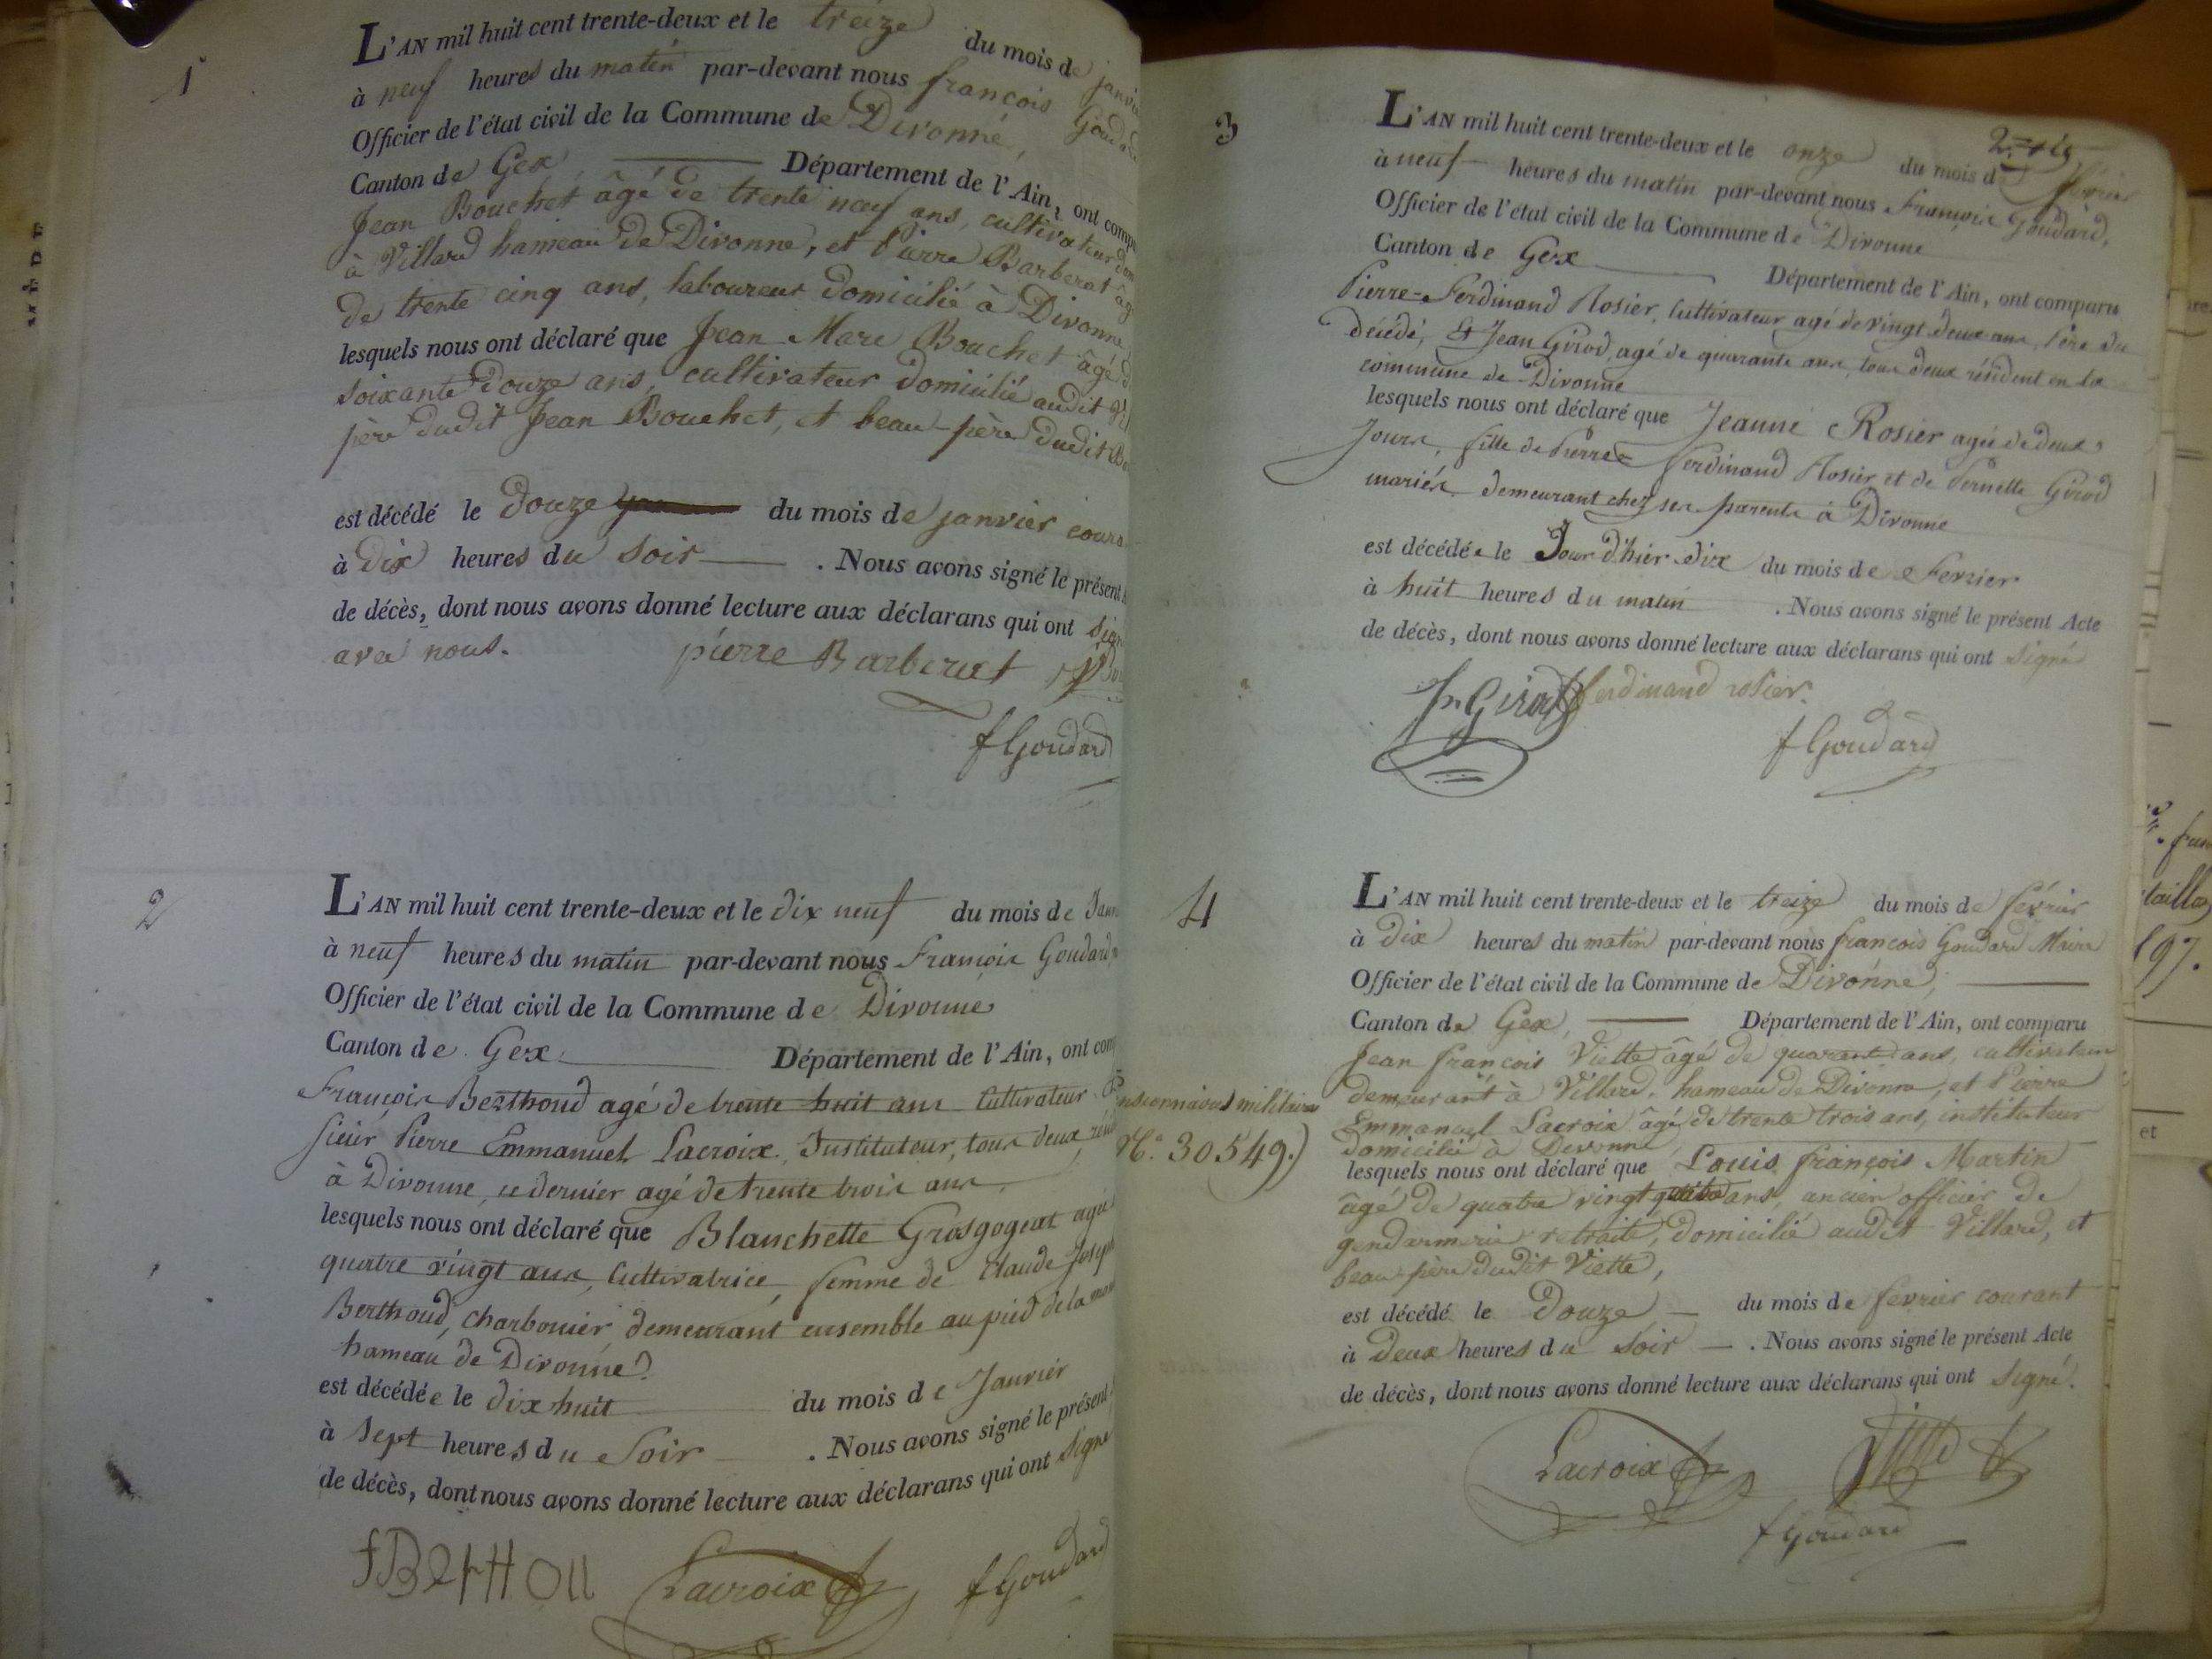 1
L'AN mil huit cent trente-deux et le treize du mois de janvie
à neuf heures du matin par-devant nous françois Goudard
Officier de l'état civil de la Commune de Divonne,
Canton de Gex, Département de l'Ain, ont compa
Jean Bouchet âgé de trente neuf ans, cultivateur dom
à Villard hameau de Divonne, et Pierre Barberat âgé
de trente cinq ans, laboureur domicilié à Divonne,
lesquels nous ont déclaré que Jean Marc Bouchet âgé d
soixante douze ans, cultivateur domicilié audit Vi
père dudit Jean Bouchet, et beau-père dudit Ba
est décédé le Douze du mois de janvier coura
à Dix heures du Soir . Nous avons signé le présent
de décès, dont nous avons donné lecture aux déclarans qui ont sign
avec nous.
pierre Barberat
f Goudard
2
L'AN mil huit cent trente-deux et le dix neuf du mois de Janv
à neuf heures du matin par-devant nous François Goudard
Officier de l'état civil de la Commune de Divonne
Canton de Gex Département de l'Ain, ont com
François Berthoud agé de trente huit ans Cultivateur
sieur Pierre Emmanuel Lacroix, Instituteur, tous deux rési
à Divonne, ce dernier agé de trente trois ans,
lesquels nous ont déclaré que Blanchette Grosgogeat agée
quatre vingt ans, Cultivatrice, femme de Claude Joseph
Berthoud, charbonier demeurant ensemble au pied de la mon
hameau de Divonne
est décédée le dix huit du mois de Janvier
à Sept heures du Soir . Nous avons signé le présent
de décès, dont nous avons donné lecture aux déclarans qui ont signé
fBertHou Lacroix f Goudard
3
L'AN mil huit cent trente-deux et le onze du mois de février
à neuf heures du matin par-devant nous François Goudard,
Officier de l'état civil de la Commune de Divonne
Canton de Gex Département de l'Ain, ont comparu
Pierre-Ferdinand Rosier, Cultivateur agé de vingt deux ans, Père du
décédé, Et Jean Girod, agé de quarante ans, tous deux résident en la
commune de Divonne
lesquels nous ont déclaré que Jeanne Rosier agée de deux
Jours, fille de Pierre-ferdinand Rosier et de Pernette Girod
mariés, demeurant chez ses parents à Divonne
est décédée le Jour d'hier dix du mois de Fevrier
à huit heures du matin . Nous avons signé le présent Acte
de décès, dont nous avons donné lecture aux déclarans qui ont signé
Jn Girod ferdinand rosier.
f Goudard
4
nsionnaires militaires
N.° 30549.)
L'AN mil huit cent trente-deux et le treize du mois de février
à Dix heures du matin par-devant nous françois Goudard Maire
Officier de l'état civil de la Commune de Divonne,
Canton de Gex, Département de l'Ain, ont comparu
Jean françois Viette âgé de quarante ans, cultivateur
demeurant à Villard, hameau de Divonne, et Pierre
Emmanuel Lacroix âgé de trente trois ans, instituteur
domicilié à Devonne,
lesquels nous ont déclaré que Louis françois Martin
âgé de quatre vingt quatre ans, ancien officier de
gendarmerie retraité, domicilié audit Villard, et
beau-père dudit Viette,
est décédé le Douze du mois de fevrier courant
à Deux heures du soir . Nous avons signé le présent Acte
de décès, dont nous avons donné lecture aux déclarans qui ont Signé.
Lacroix Viette
f Goudard
taille
97.
et